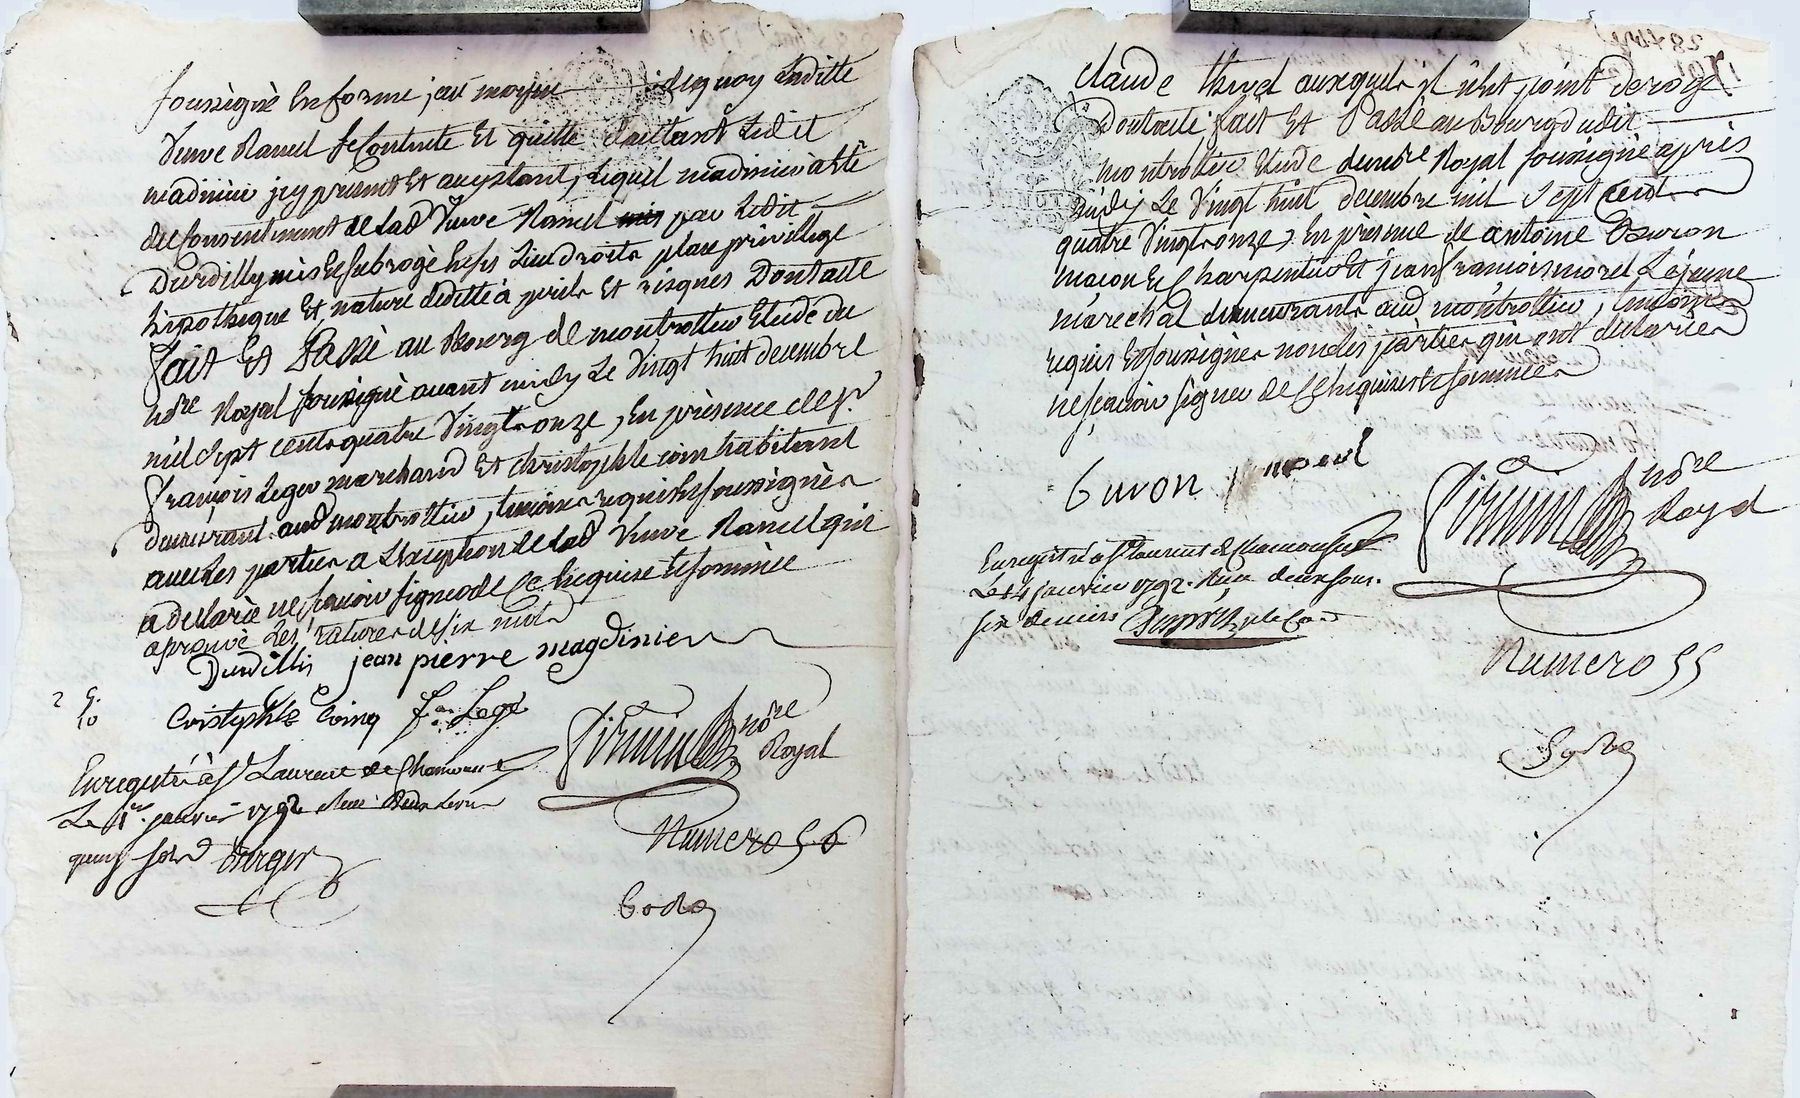 soussigné en forme, au moyen de quoy Laditte
Veuve Ramel se Contente Et quitte d'aultant Ledit
madinier jcy present Et aceptant, Lequel madinier a Eté
du Consentement de Lad Veuve Ramel par Ledit
Durdilly mis Et subrogé En ses Lieu droits place privillege
hipotheque Et nature dedette à perils Et risques Dont acte
fait Et Passé au Bourg de montrottier Etude du
nore Royal soussigné avant midy Le Vingt huit decembre
mil Sept cents quatre Vingts onze, En présence de sr
françois Leger marchand Et christophle coin habitant
demeurant aud montrottier, temoins requis Et soussignés
avec Les parties a L'exception de Lad Veuve Ramel qui
a declaré ne sçavoir signer de Ce Enquise Et sommée
aprouvé Les ratures de six mots
Durdilly jean pierre magdinier
2 5.
10
Cristophle Coing f. Legé
nore
Royal
Enregistré à St Laurent de Chamousset
Le 1er janvier 1792
quinze sols
Numero 56
Claude auxquels il n'est point derogé
Dont acte fait Et Passé au Bourg dudit
montrottier Etude du nore Royal soussigné après
midy Le Vingt huit decembre mil Sept cent
quatre Vingts onze, En présence de antoine Guron
maçon Et Charpentier Et jean françois morel Lejeune
marechal demeurants aud montrottier, temoins
requis Et soussignés non les parties qui ont declarées
ne sçavoir signer de Ce Enquises Et sommées
Guron morel
nore
Royal
Enregistré a St Laurent de Chamousset
Le 4 janvier 1792. deux sous
six deniers
Numero 55